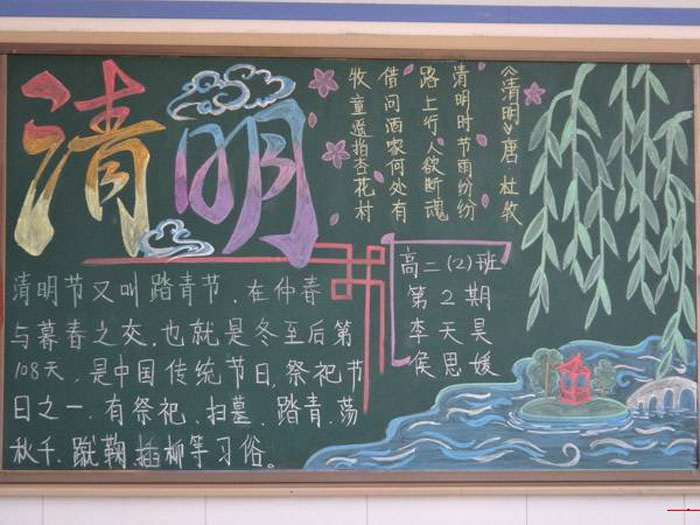 清明
《清明》唐 杜牧
清明时节雨纷纷
路上行人欲断魂
借问酒家何处有
牧童遥指杏花村
清明节又叫踏青节，在仲春
与暮春之交，也就是冬至后第
108天，是中国传统节日，祭祀节
日之一，有祭祀、扫墓、踏青、荡
秋千、蹴鞠、插柳等习俗。
高二（2）班
第2期
李天昊
侯思媛